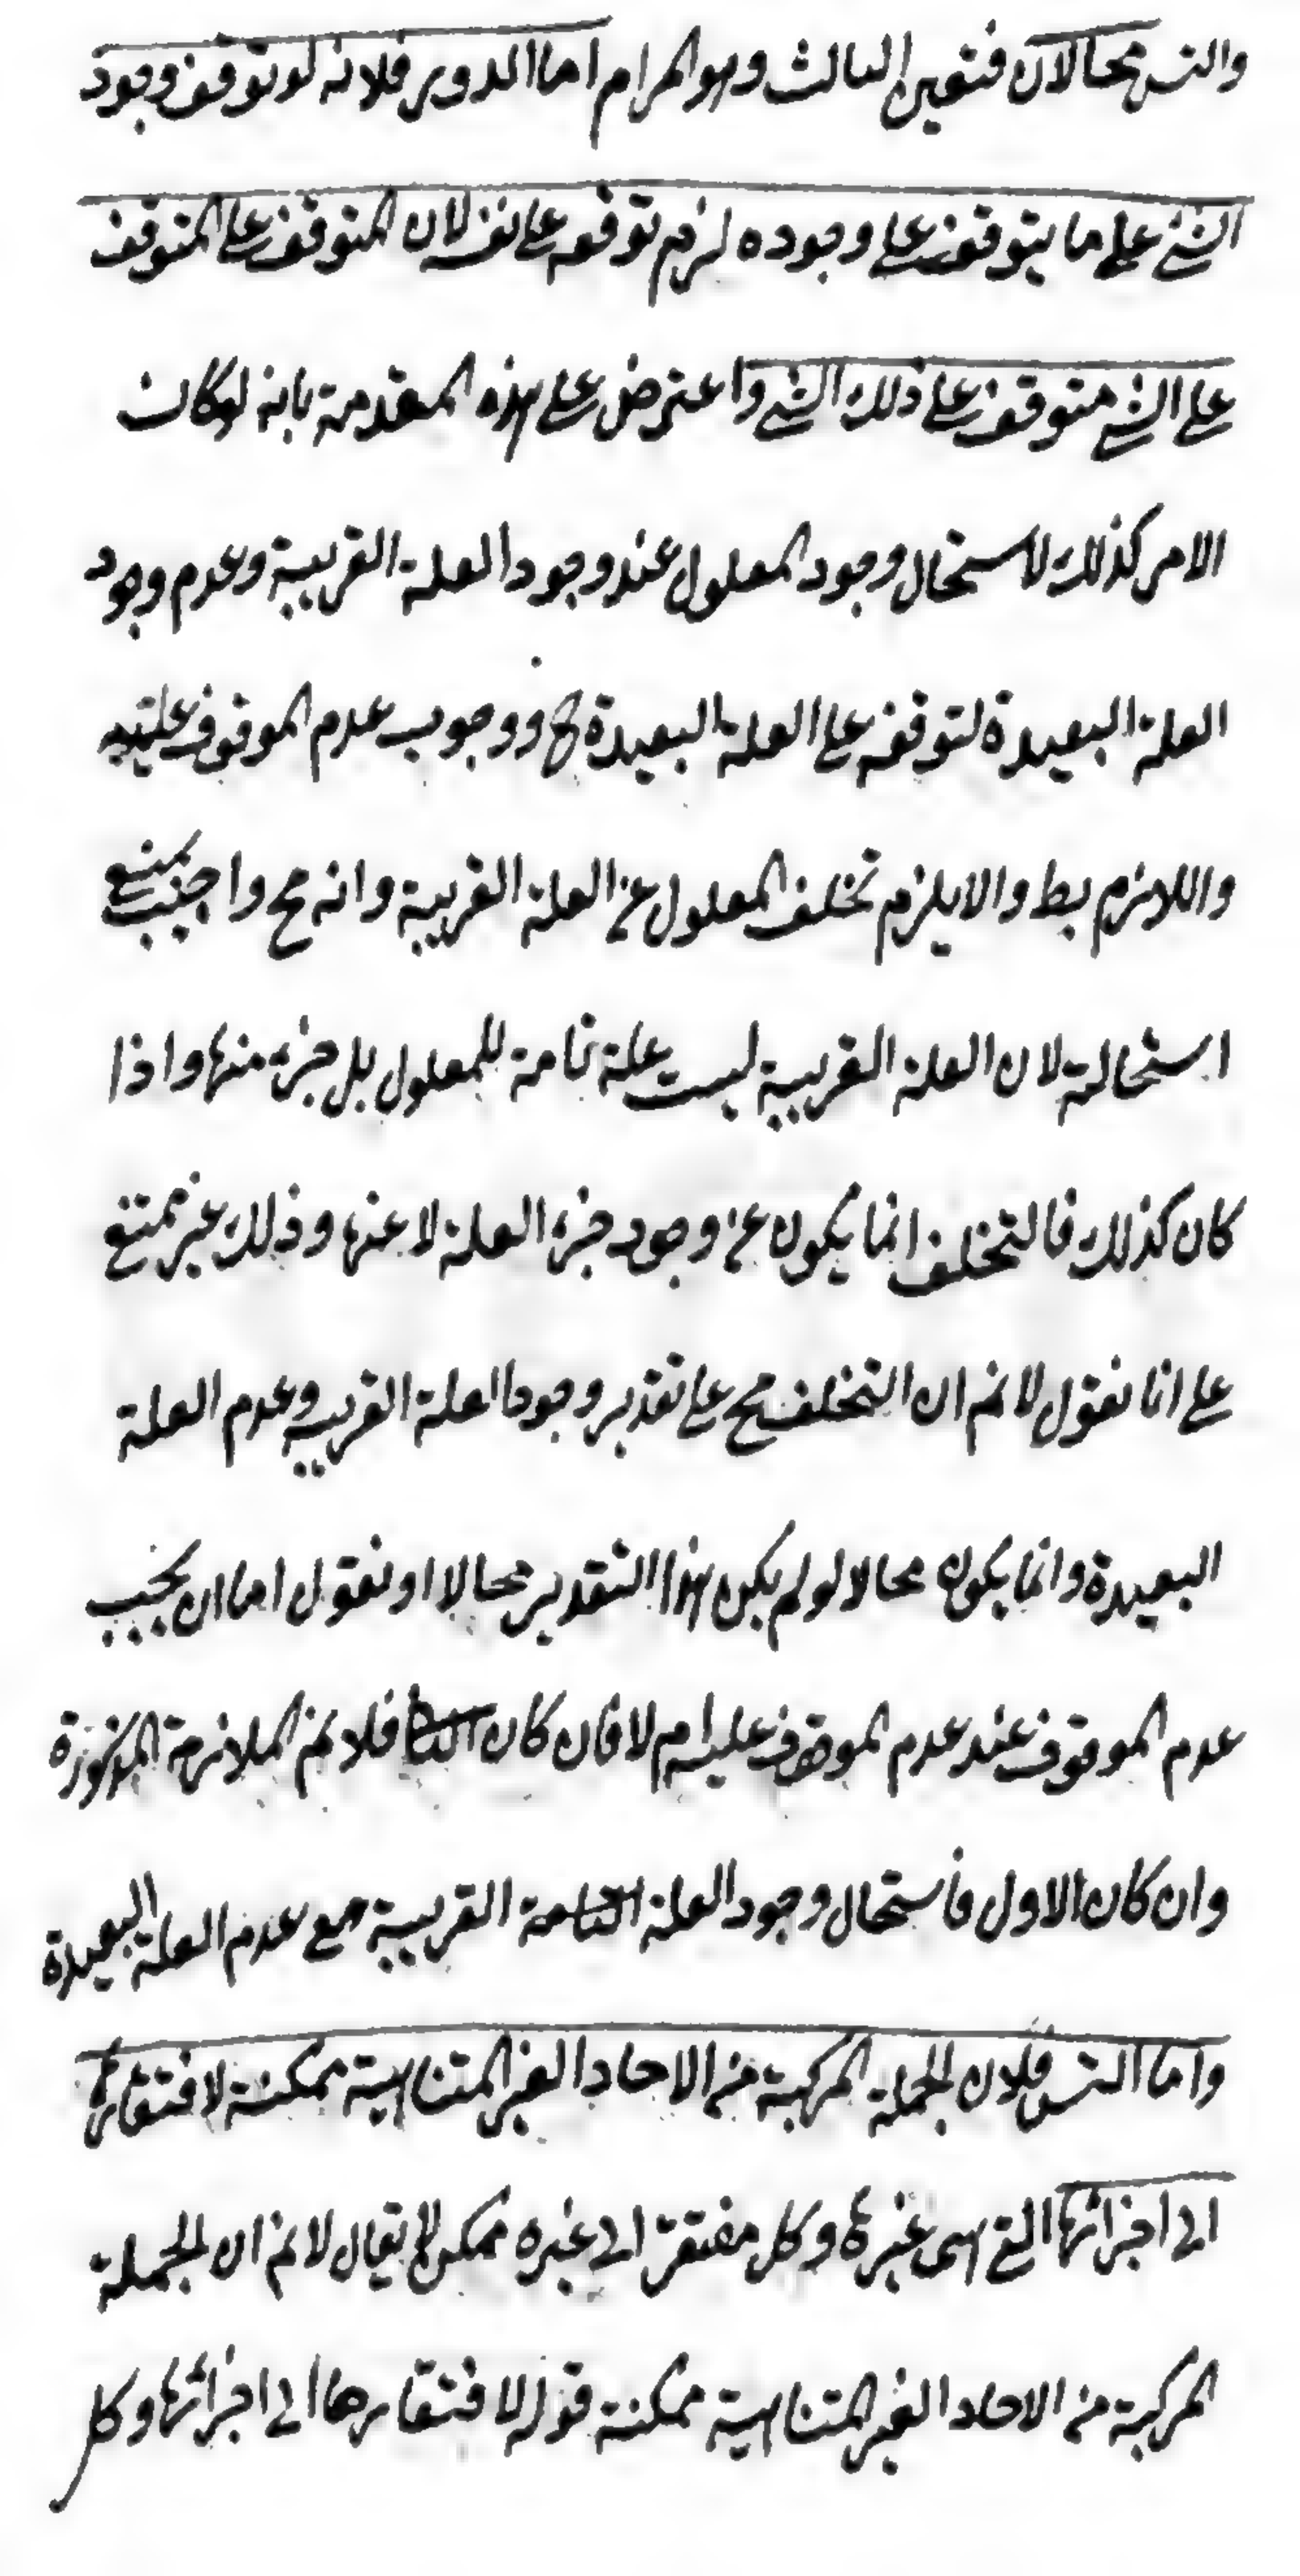 والتس محالان فتعين الثالث وهو المرام اما الدور فلانه لو توقف وجود
الشئ على ما يتوقف على وجوده لزم توقفه على نفسه لان المتوقف على المتوقف
على الشئ متوقف على ذلك الشئ واعترض على هذه المقدمة بانه لو كان
الامر كذلك لاستحال وجود المعلول عند وجود العلة القريبة وعدم وجود
العلة البعيدة لتوقفه على العلة البعيدة ح ووجوب عدم الموقوف عليه
واللازم بط والا يلزم تخلف المعلول عن العلة القريبة وانه مح واجيب بمنع
استحالته لان العلة القريبة ليست علة تامة للمعلول بل جزء منها واذا
كان كذلك فالتخلف انما يكون عن وجود جزء العلة لا عنها وذلك غير ممتنع
على انا نقول لا نم ان التخلف مح على تقدير وجود العلة القريبة وعدم العلة
البعيدة وانما يكون محالا لو لم يكن هذا التقدير محالا او نقول اما ان يجب
عدم الموقوف عند عدم الموقوف عليه ام لا فان كان فلا نم الملازمة المذكورة
وان كان الاول فاستحال وجود العلة التامة القريبة مع عدم العلة البعيدة
واما التس فلان الجملة المركبة من الاحاد الغير المتناهية ممكنة لافتقارها
الى اجزائها التي هى غيرها وكل مفتقر الى غيره ممكن لا يقال لا نم ان الجملة
المركبة من الاحاد الغير المتناهية ممكنة قوله لافتقارها الى اجزائها وكل